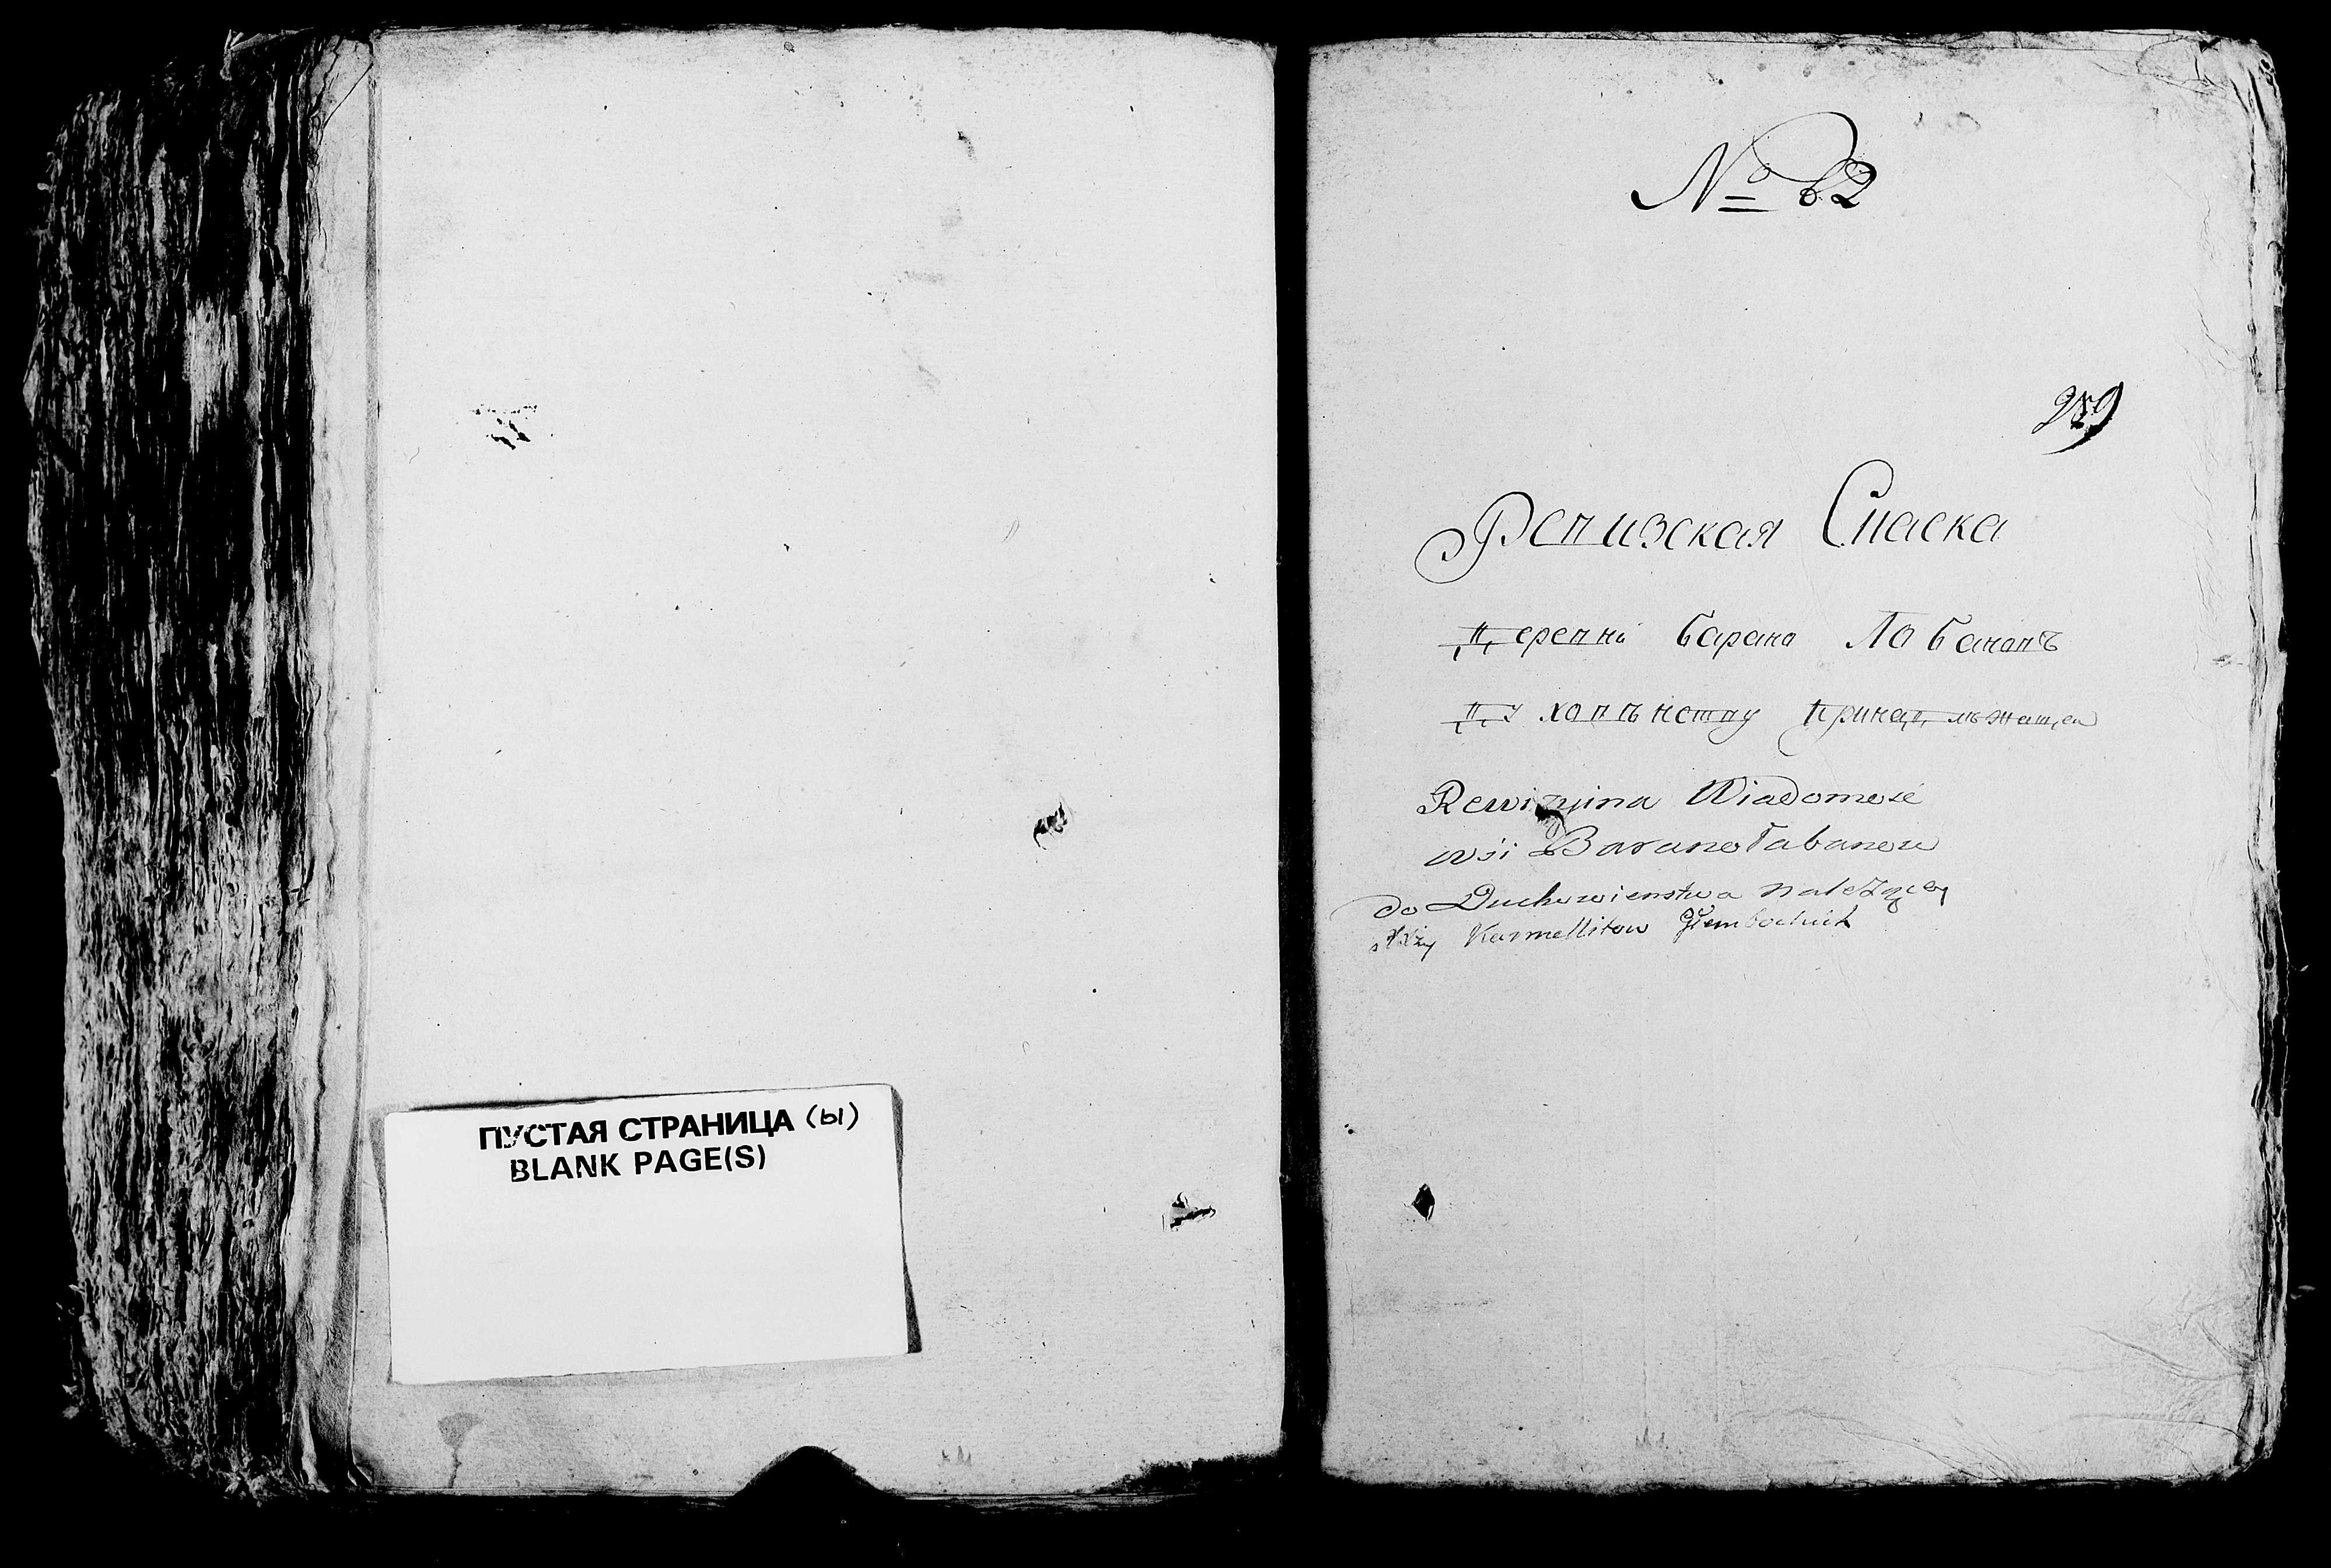 ПУСТАЯ СТРАНИЦА (ы)
BLANK PAGE(S)
№ 62
259
Ревизская Сказка
Деревни Барано Лобановъ
Духовѣнству принадлѣжащеи
Rewizyina Wiadomość
wsi Baranołabanow
do Duchowienstwa należącey
Karmellitow Głembockich